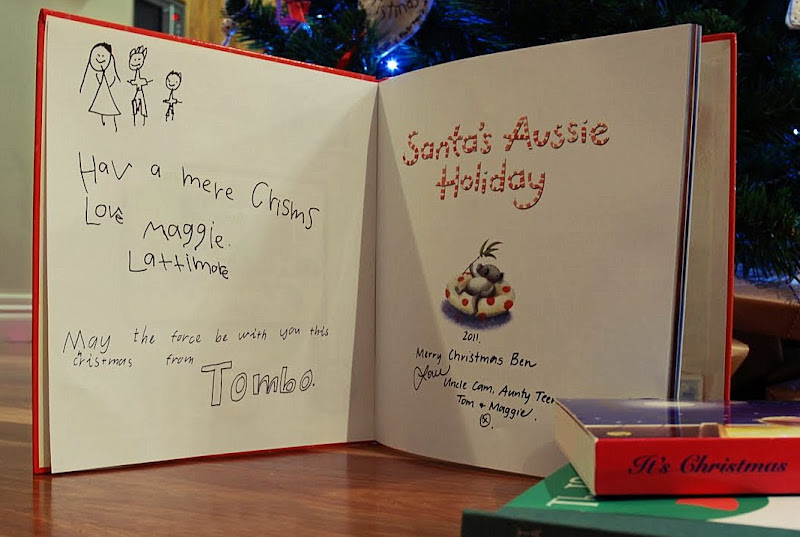 Hav a mere Crisms
Love Maggie.
Lattimore
May the force be with you this
cristmas from
Tombo.
Santa's Aussie
Holiday
2011.
Merry Christmas Ben
Love
Uncle Cam, Aunty Teen
Tom & Maggie.
x
It's Christmas